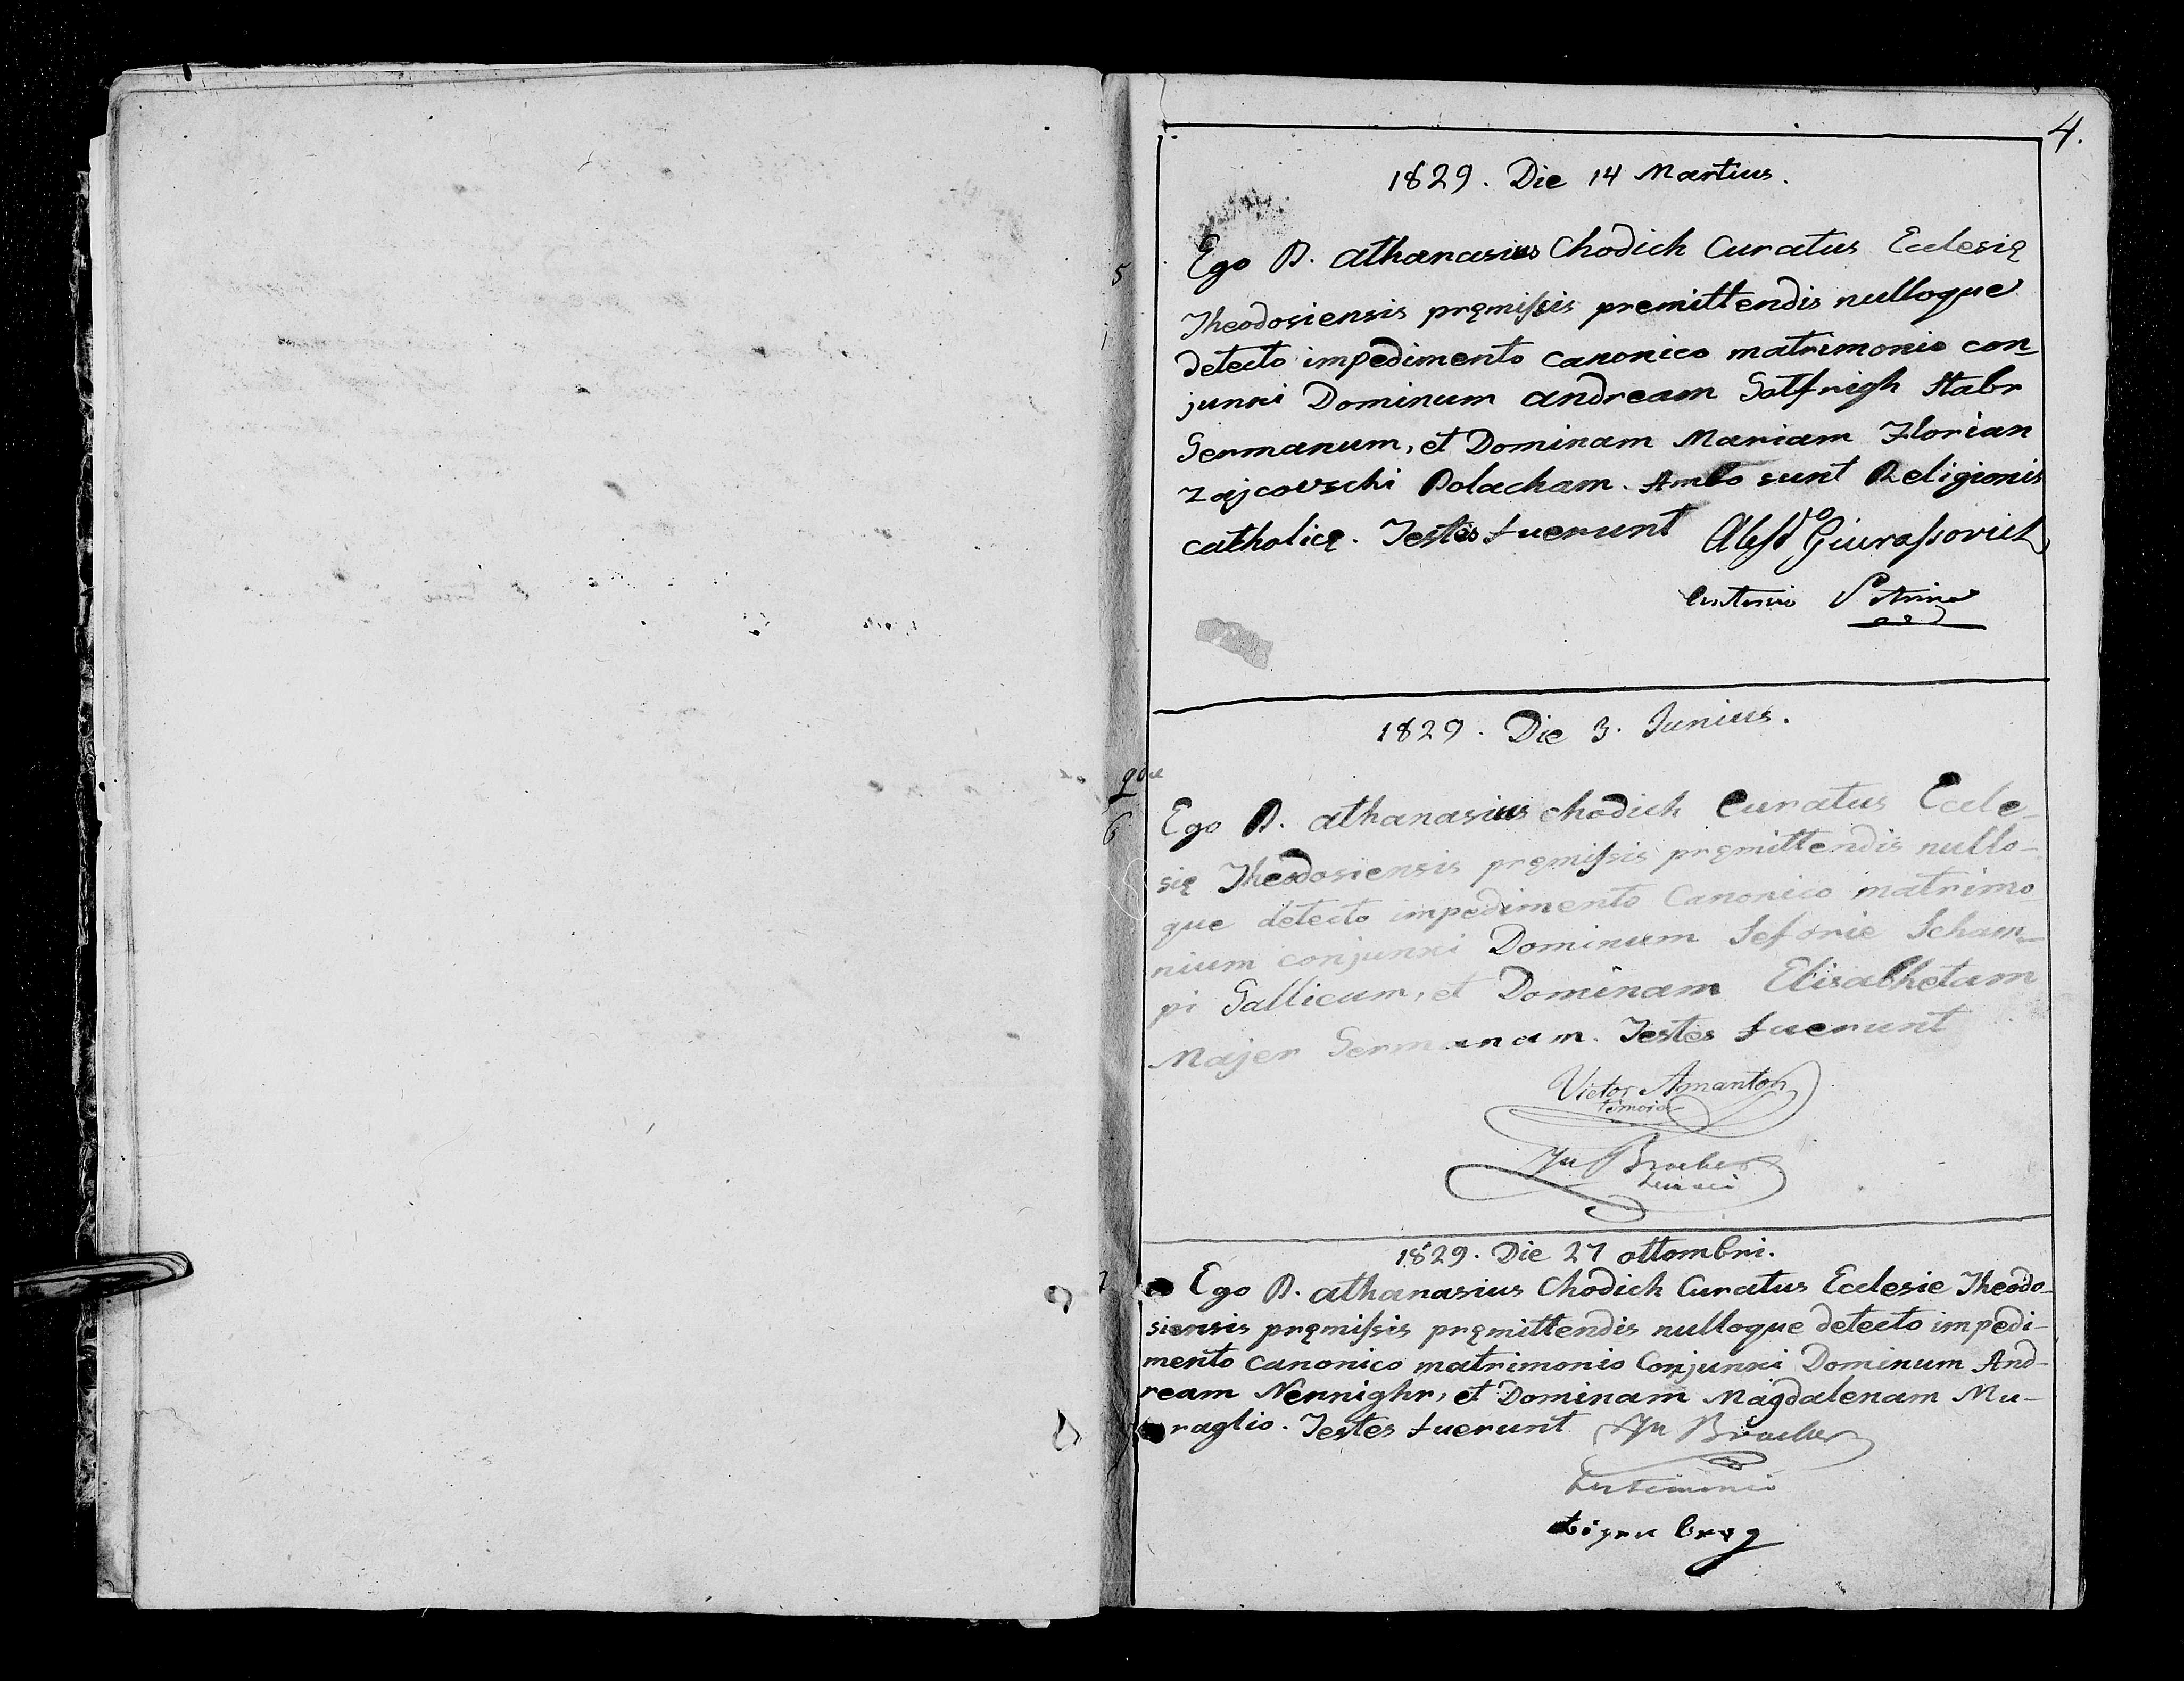 4.
1829. Die 14 Martius.
5
Ego P. Athanasius Chodich Curatus Eclesię
Theodosiensis pręmissis premittendis nulloque
detecto impedimento canonico matrimonio con
junxi Dominum Andream Gotfrigh Stabr
Germanum, et Dominam Mariam Florian
Zajcovschi Polacham. Ambo sunt Religionis
catholicę. Testes fuerunt Alessdo Giurassovich
Antonio
1829. Die 3. Junius.
6
Ego P. Athanasius Chodich Curatus Eccle-
się Theodosiensis pręmissis pręmittendis nullo-
que detecto impedimento Canonico matrimo
nium conjunxi Dominum Seforie Scham-
pi Gallicum, et Dominam Elisabhetam
Majer Germanam. Testes fuerunt
Victor Amanton
temoin
1829. Die 27 ottombri.
7
Ego P. Athanasius Chodich Curatus Ecclesie Theodo-
siensis pręmissis pręmittendis nulloque detecto impedi-
mento canonico matrimonio Conjunxi Dominum And-
ream Nennighr, et Dominam Magdalenam Mu-
raglio. Testes fuerunt